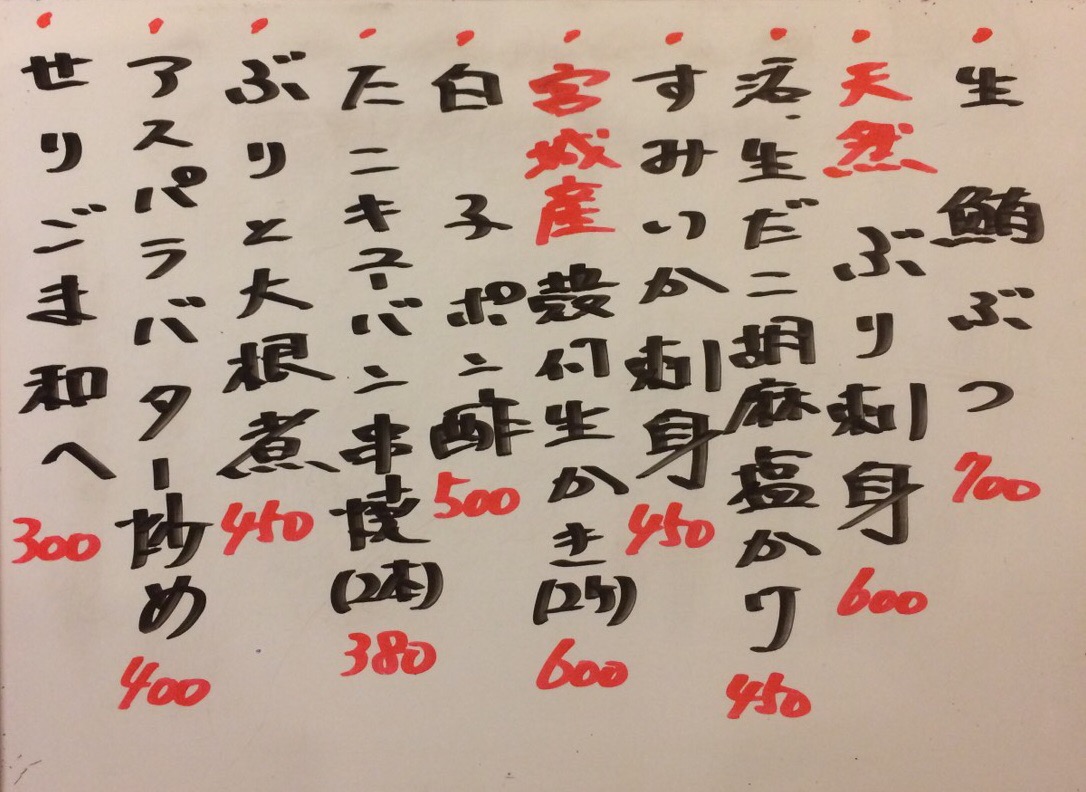 生 鮪ぶつ 700
天然 ぶり刺身 600
活.生だこ胡麻塩かけ 450
すみいか刺身 450
宮城産 殻付生かき(2ケ) 600
白子ポン酢 500
たこキューバン串焼(2本) 380
ぶりと大根煮 450
アスパラバター炒め 400
せりごま和へ 300